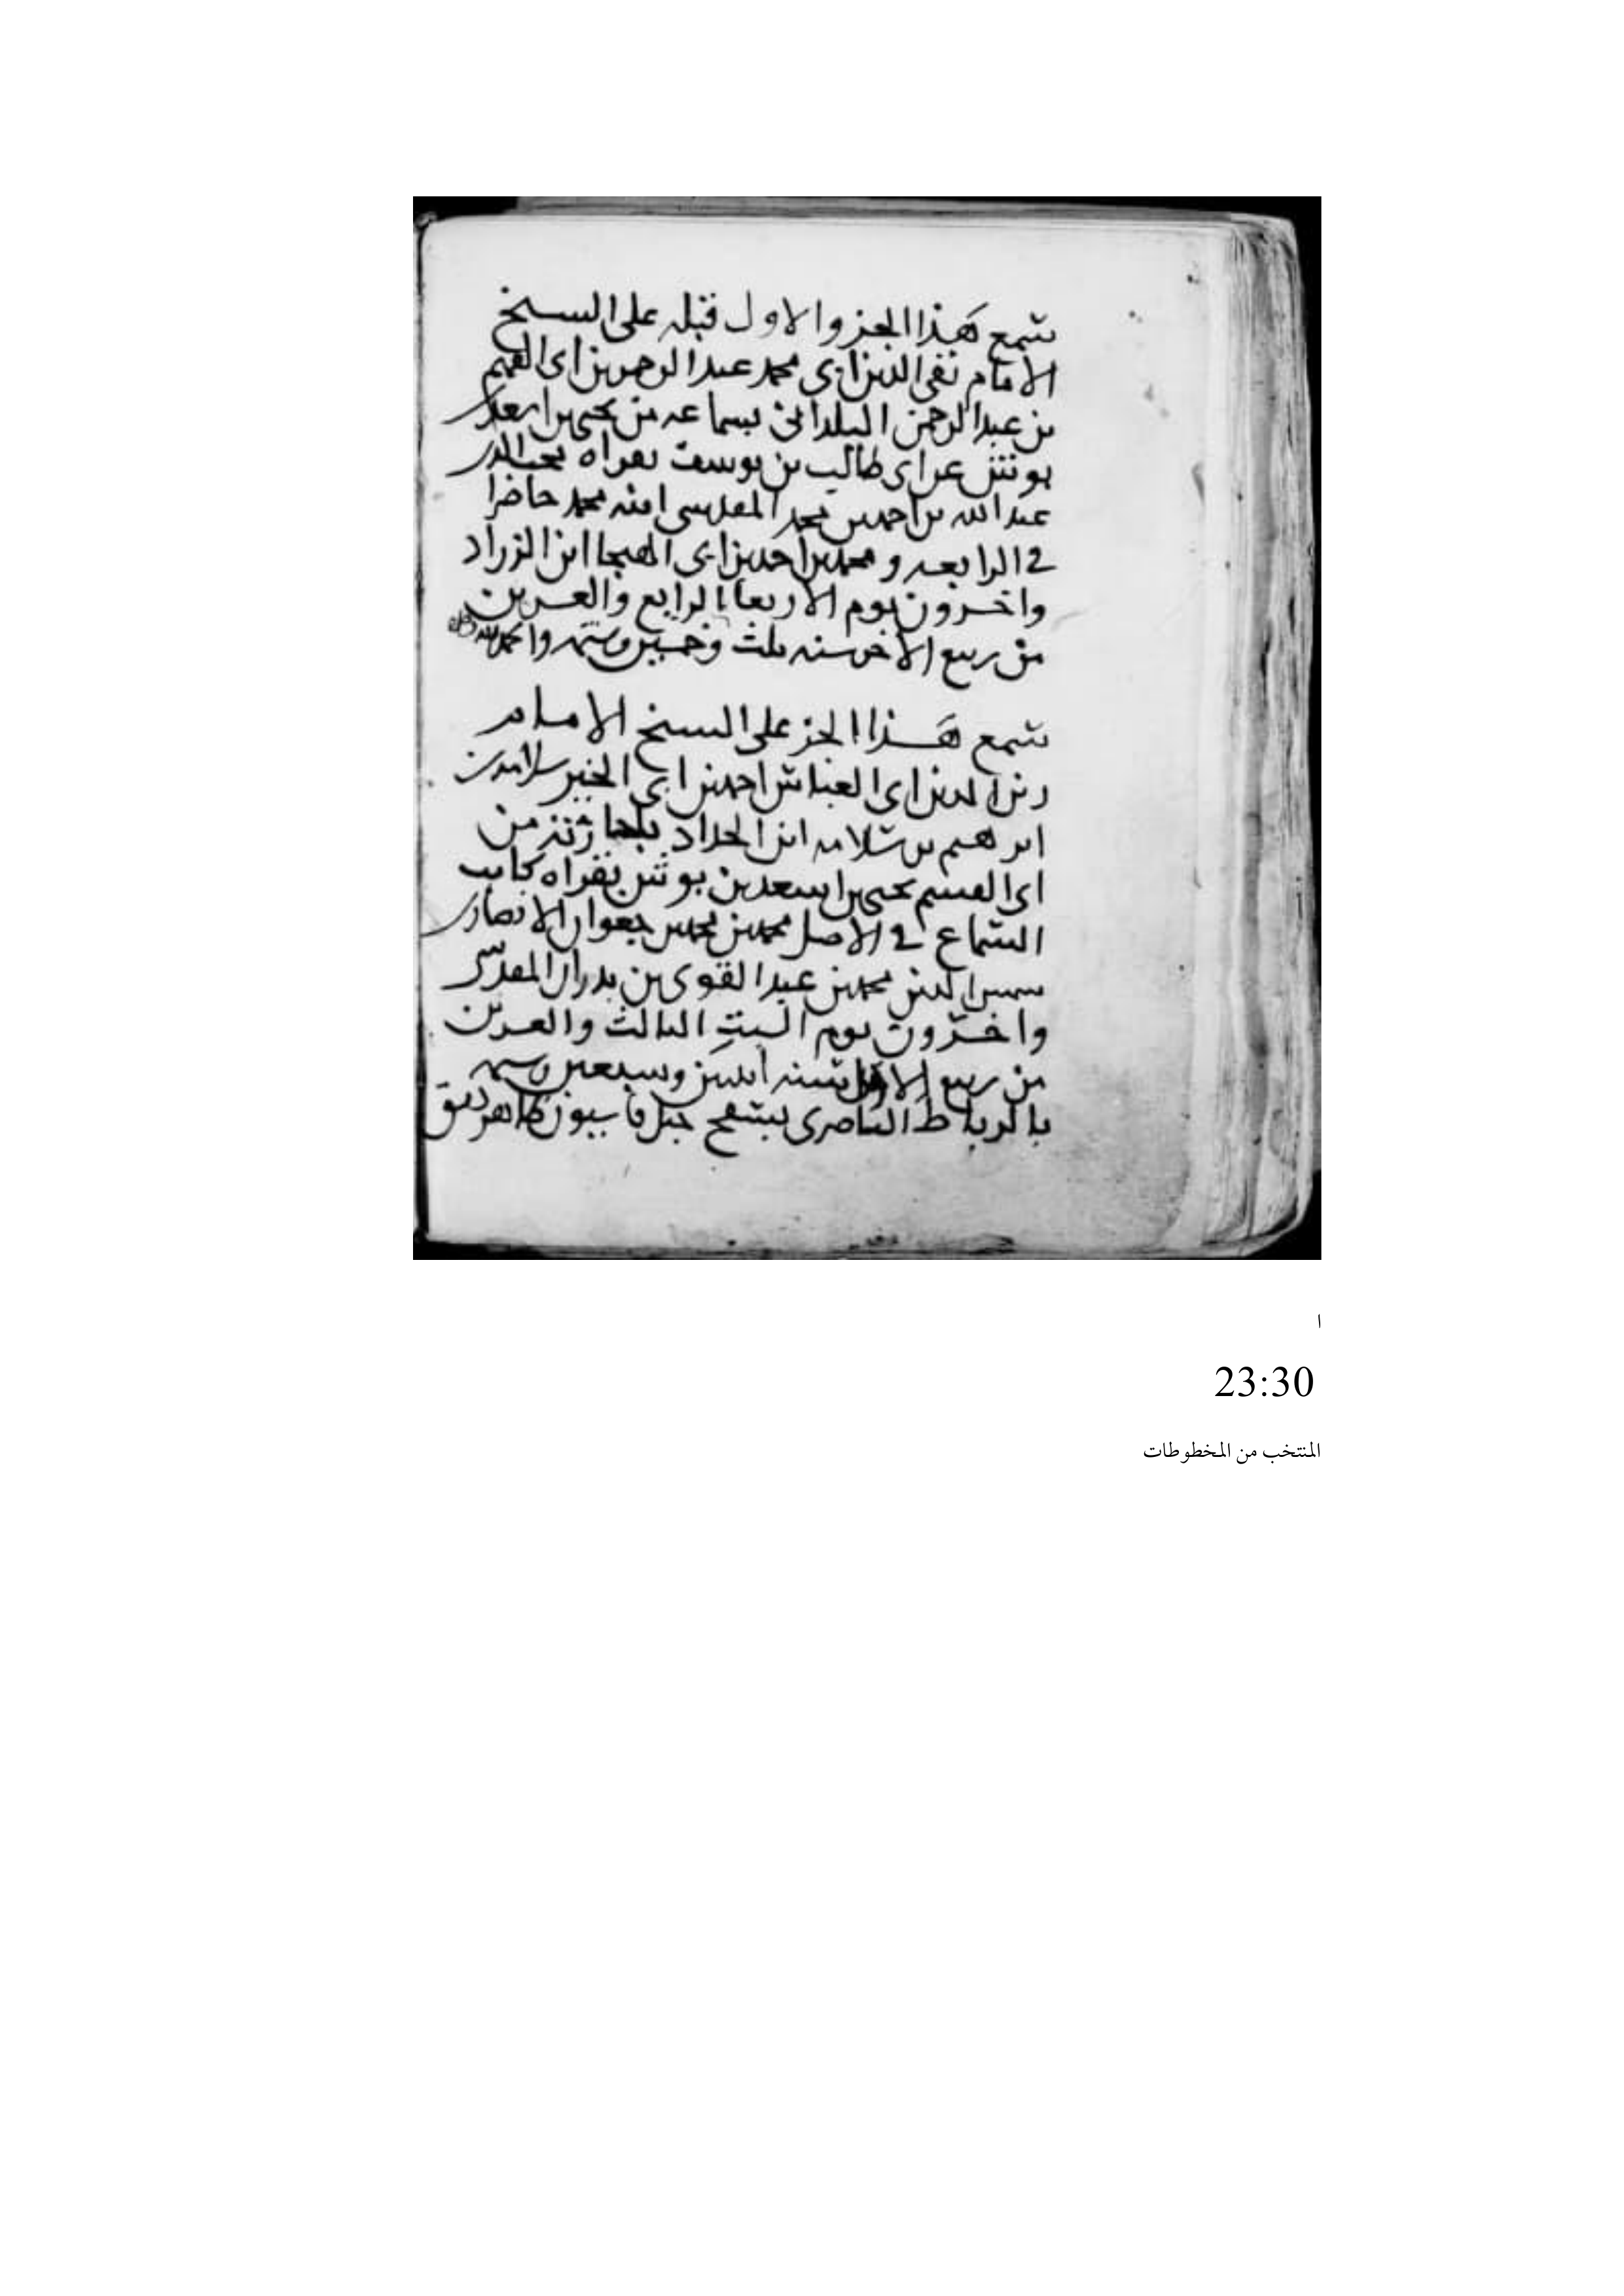 سمع هذا الجزو الاول قبله على الشيخ
الامام تقي الدين ابي محمد عبد الرحمن بن ابي الفهم
بن عبد الرحمن البلداني بسماعه من يحيى بن اسعد بن
بوش عن ابي طالب بن يوسف بقراه محب الدين
عبد الله بن احمد بن محمد المقدسي ابنه محمد حاضرا
في الرابعه و محمد بن احمد بن ابي الهيجا ابن الزراد
واخرون يوم الاربعا الرابع والعشرين
من ربيع الاخر سنه ثلث وخمسين وستمه والحمد لله
سمع هذا الجز على الشيخ الامام
زين الدين ابي العباس احمد بن ابي الخير سلامه بن
ابرهيم بن سلامه ابن الحداد باجازته من
ابي القسم يحيى بن اسعد بن بوش بقراه كاتب
السماع في الاصل محمد بن محمد بن جعوان الانصاري
شمس الدين محمد بن عبد القوي بن بدران المقدسي
واخرون يوم السبت الثالث والعشرين
من ربيع الاول سنه اثنين وسبعين وستمه
بالرباط الناصري بسفح جبل قاسيون ظاهر دمشق
ا
23:30
المنتخب من المخطوطات